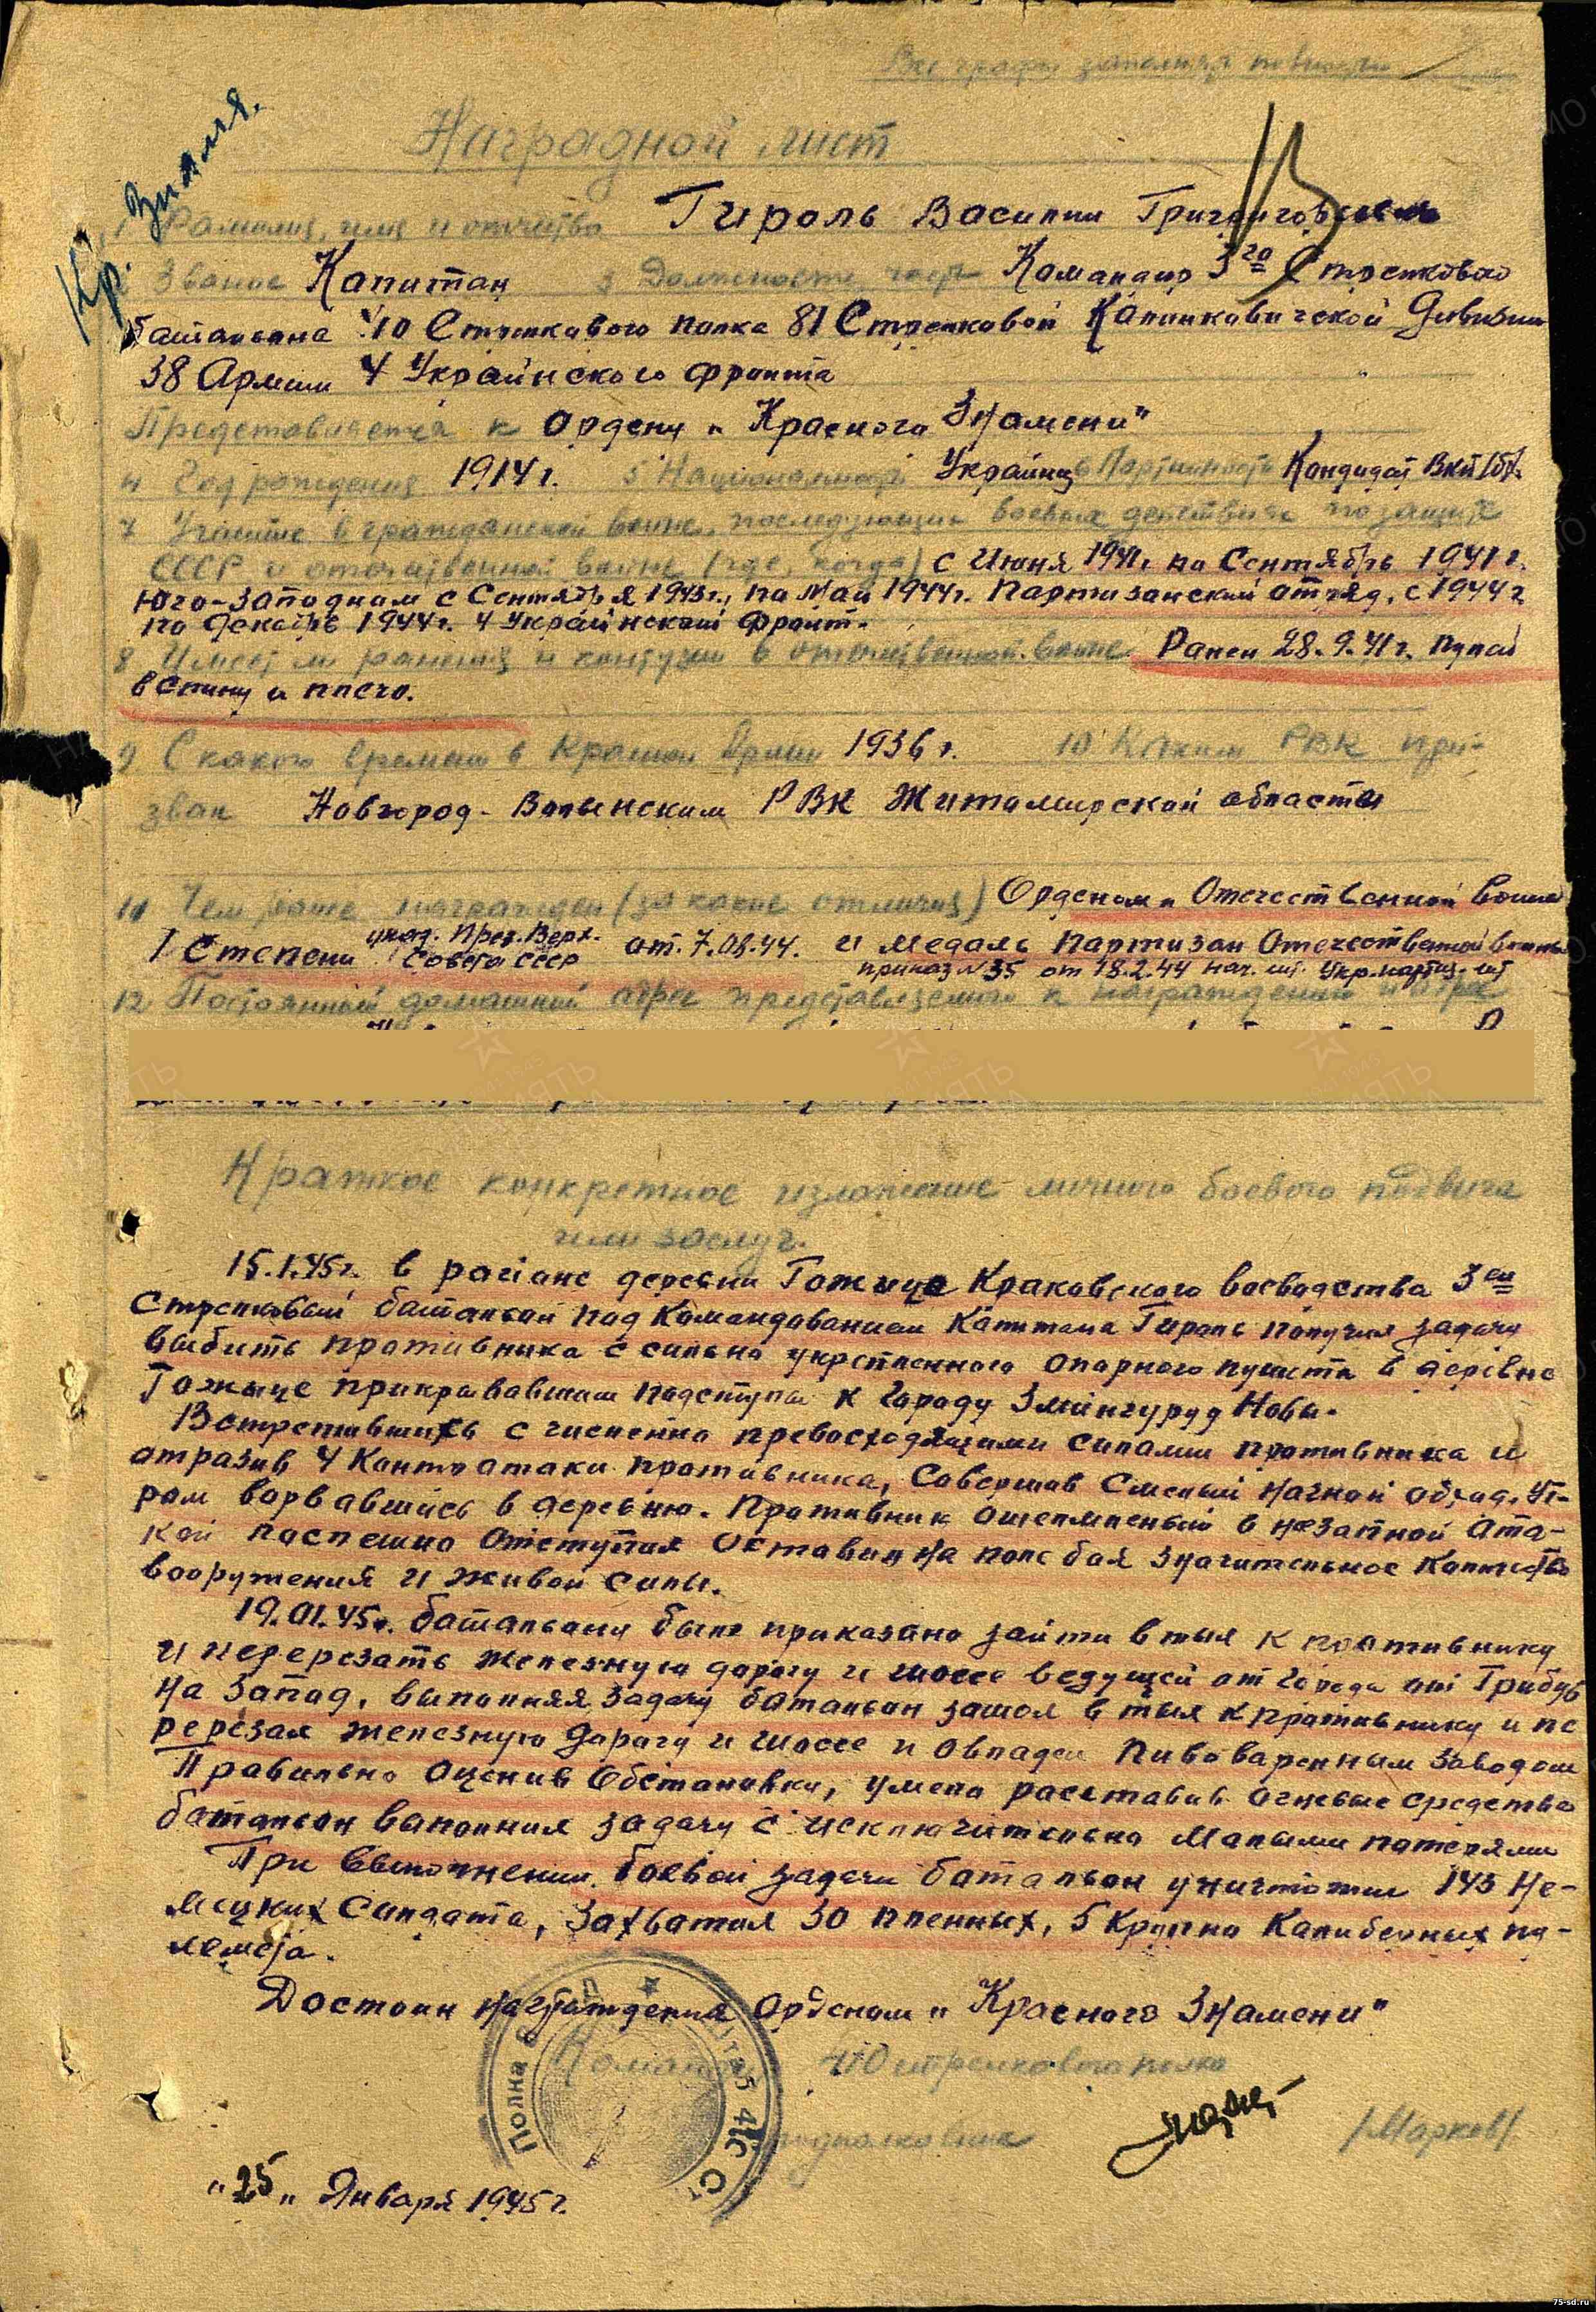 Все графы заполнять полностью
Наградной лист
Кр. Знамя.
1 Фамилия, имя и отчество Гироль Василии Григоиговичь
2 Звание Капитан 3 Должность, часть Командир 3го Стрелкового
батальона 410 Стрелкового полка 81 Стрелковой Калинкавичской Дивизии
38 Армии 4 Украинского фронта
Представляется к Ордену „Красного Знамени"
4 Год рождения 1914 г. 5 Национальность Украинец 6 Партийность Кандидат ВКП(б).
7 Участие в гражданской войне, последующих боевых действиях по защите
СССР и отечественной войне (где, когда) с Июня 1941г по Сентябрь 1941 г.
Юго-Западном с Сентября 1943г., по Май 1944г. Партизанский отряд, с 1944 г
по Декабрь 1944г. 4 Украинский Фронт.
8 Имеет ли ранения и контузии в отечественной войне Ранен 28.9.41г. пулей
в спину и плечо.
9 С какого времени в Красной Армии 1936 г. 10 Каким РВК при-
зван Новгород-Волынским РВК Житомирской области
11 Чем ранее награжден (за какие отличия) Орденом „Отечественной Воины
I Степени указ. През. Верх. Совета СССР от. 7.08.44. и медаль Партизан Отечественной воины
приказ №35 от 18.2.44 нач. шт. Укр. партиз. шт
12 Постоянный домашний адрес представляемого к награждению и адрес
Краткое конкретное изложение личного боевого подвига
или заслуг.
15.1.45г. в раione деревни Гожице Краковского воеводства 3ий
Стрелковый батальон под Командованием Капитана Гироль получил задачу
выбить противника с сильно укрепленного опорного пункта в деревне
Гожыце прикрывавшим подступы к городу Змингуруд Новы.
Встретившись с численно превосходящими силами противника и
отразив 4 Контратаки противника, Совершив Смелый ночной обход, Ут-
ром ворвавшись в деревню. Противник ошеломленый внезапной ата-
кой поспешно Отступил Оставив на поле боя значительное Количество
вооружения и живой силы.
19.01.45г. батальону было приказано зайти в тыл к противнику
и перерезать железную дорогу и шоссе ведущей от города Грибув
на запад, выполняя задачу батальон зашол в тыл к противнику и пе
ререзал железную дорогу и шоссе и овладел Пивоваренным заводом
Правильно оценив Обстановку, умело расставив огневые средства
батальон выполнил задачу с исключительно малыми потерями
При выполнении боевой задачи батальон уничтожил 143 не-
мецких Солдата, захватил 30 пленных, 5 Крупно Калиберных пу-
лемета.
Достоин награждения Орденом „Красного Знамени"
Командир 410 стрелкового полка
подполковник /Марков/
„25„ Января 1945г.
75-sd.ru